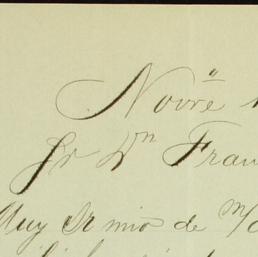 Novre
Sr Dn Fran
Muy Sr mio de m/